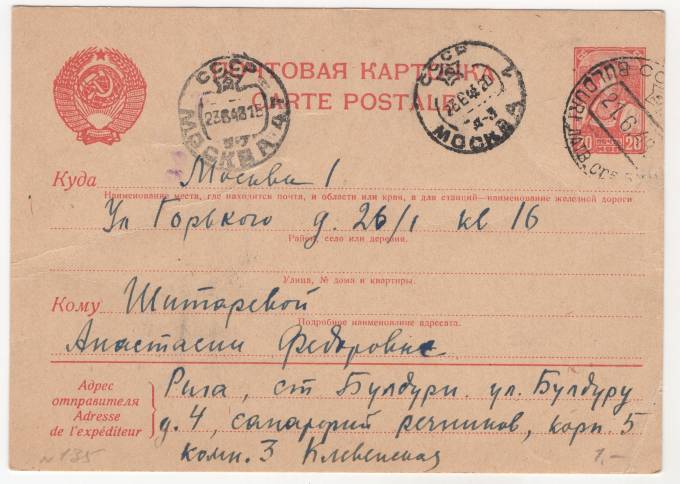 ПОЧТОВАЯ КАРТОЧКА
CARTE POSTALE
СССР
23 6 48 15
МОСКВА
СССР
23 6 48 20
МОСКВА
BULDURI
21.6.48
20 20
Куда Москва 1
Наименование места, где находится почта, и области или края, а для станций—наименование железной дороги
Ул Горького д. 26/1 кв 16
Район, село или деревня.
Улица, № дома и квартиры.
Кому Шитаревой
Подробное наименование адресата.
Анастасии Федоровне
Адрес отправителя
Adresse de l'expéditeur
Рига, ст Булдури. ул. Булдуру
д. 4, санаторий речников, корп. 5
комн. 3 Клевенская
№ 135
1.-